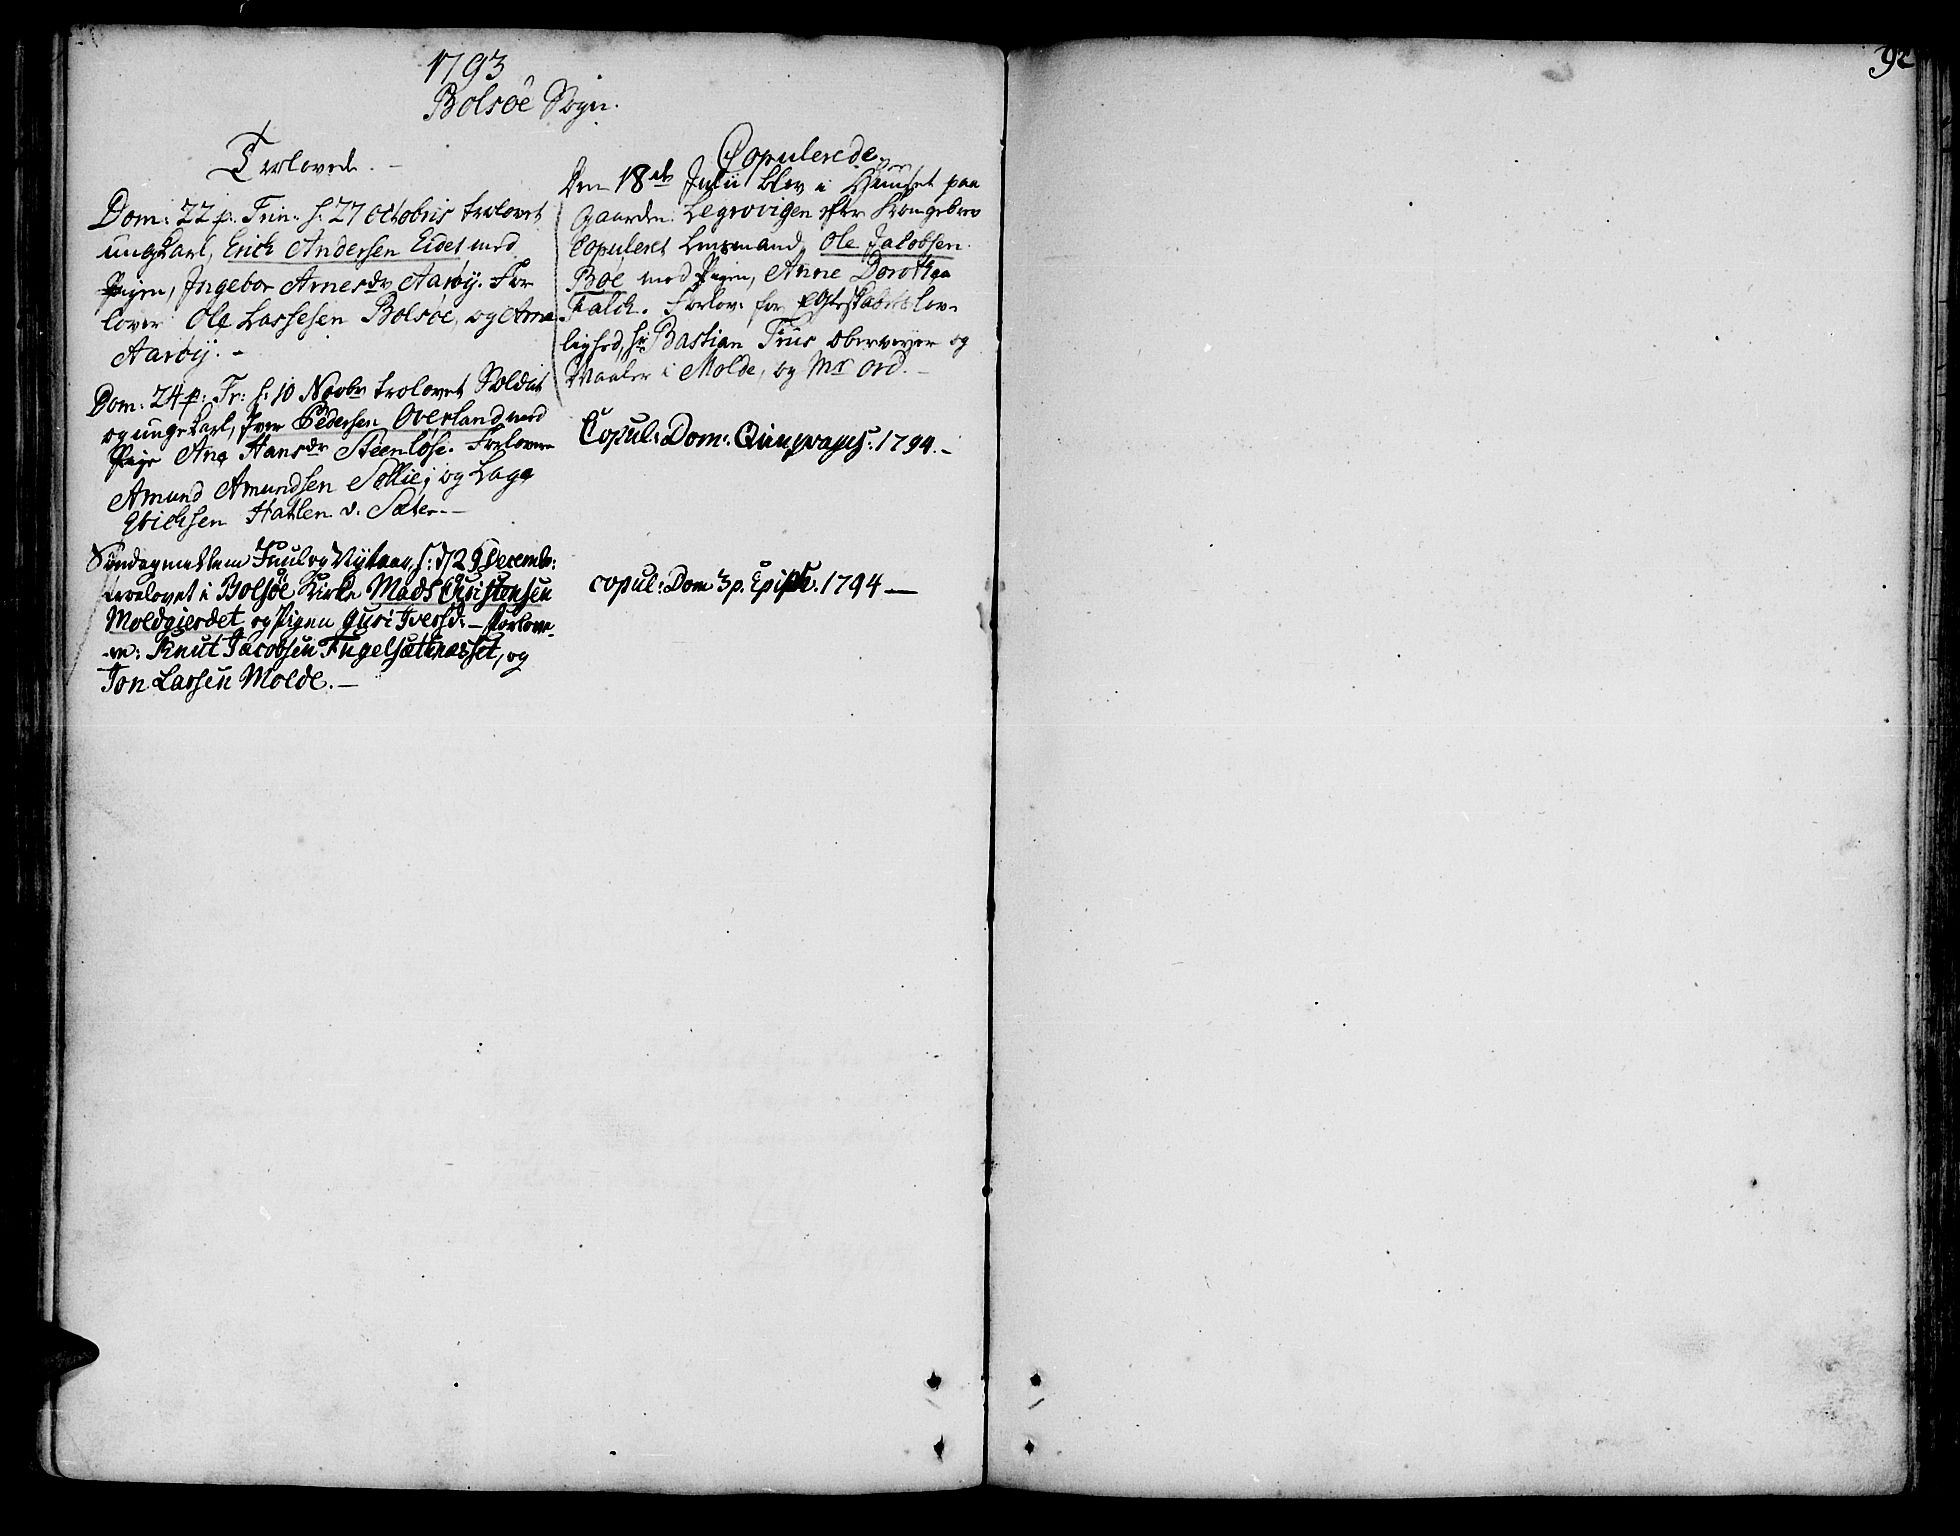 1793
Bolsöe Sogn.
Trolovede.-
Dom: 22 p. Trin: s: 27 Octobris trolovet
ungkarl, Erich Andersen Eidet med
Pigen, Ingebor Arnesdr Aaröy. For
lover Ole Lassesen Bolsöe, og Arne
Aaröy.-
Dom: 24 p: Tr: s: 10 Novbr trolovet Soldat
og ungekarl, Iver Pedersen Overland med
Pige Ane Hansdr Steenlöse. Forlovere
Amund Amundsen Sollie, og Lage
Erichsen Hatlen v. Sæter.-
Söndag mellem Juul og Nytaar, s: d 29 Decemb:
troelovet i Bolsöe Kirke Mads Christensen
Moldgierdet og Pigen Guri Iversd: - Forlove-
re: Knut Jacobsen Fugelsætnæsset, og
Jon Larsen Molde.-
Copulerede.
Den 18de Julii blev i Huuset paa
Gaarden Legrovigen efter Kongebrev
Copuleret Lensmand Ole Jacobsen
Böe med Pigen, Anne Dorothea
Falch. Forlov: for Egteskabets lov-
lighed, Hr Bastian Friis Oberveyer og
Maaler i Molde, og Mr Ord.-
Copul: Dom: Quinqvages: 1794.-
copul: Dom 3 p. Epiph. 1794 -
92